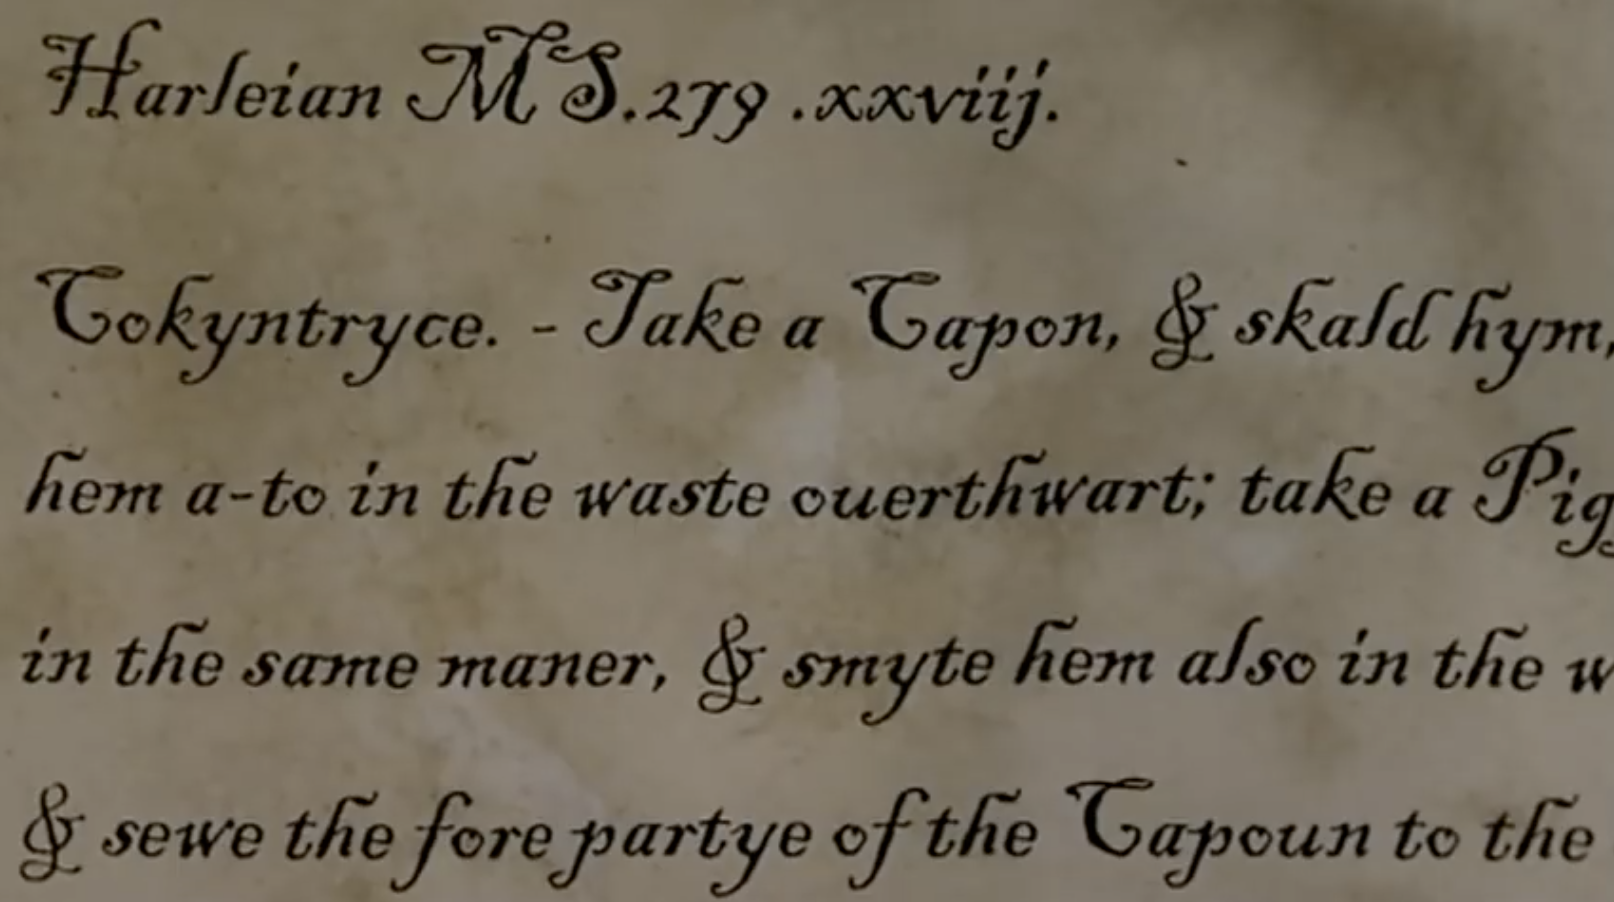 Harleian MS.279 .xxviij.
Cokyntryce. - Take a Capon, & skald hym,
hem a-to in the waste ouerthwart; take a Pig
in the same maner, & smyte hem also in the w
& sewe the fore partye of the Capoun to the